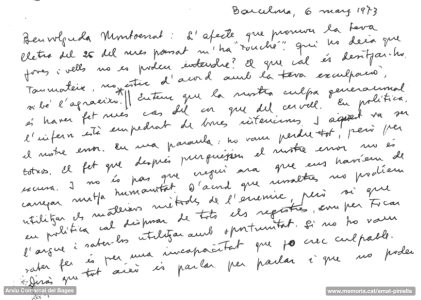 Barcelona, 6 març 1973
Benvolguda Montserrat: L'afecte que promou la teva
lletra del 25 del mes passat m'ha "touché". qui no deia que
joves i vells no es poden entendre? El que cal és desitjar-ho.
Tanmateix, no estic d'acord amb la teva exculpació,
si bé l'agraeixo. Entenc que la nostra culpa generacional
és haver fet més cas del cor que del cervell. En política,
l'infern està empedrat de bones intencions. I aquest va ser
el nostre error. En una paraula: ho vam perdre tot, però per
totxos. El fet que després el nostre error no és
excusa. I no és pas que cregui ara que ens havíem de
carregar mitja humanitat. D'acord que nosaltres no podíem
utilitzar els mateixos mètodes de l'enemic, però sí que
en política cal disposar de tots els registres, com per tocar
l'orgue i saber-los utilitzar amb oportunitat. Si no ho vam
saber fer és per una incapacitat que jo crec culpable.
Diràs que tot això és parlar per parlar i que no poder
Arxiu Comarcal del Bages
www.memoria.cat/amat-piniella